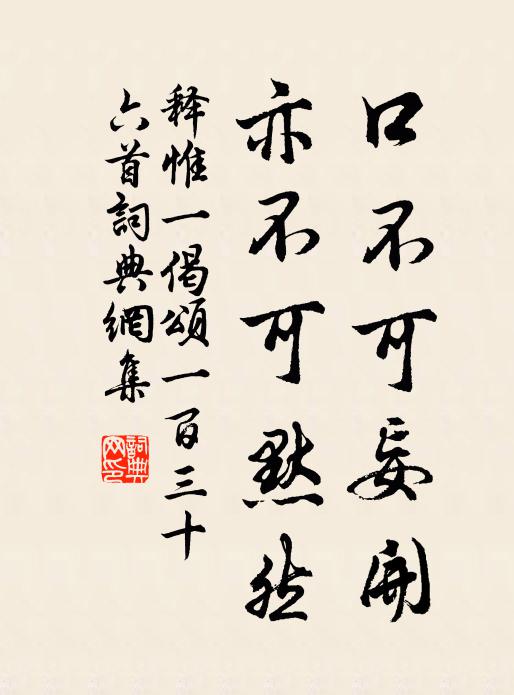 口不可妄開
亦不可默然
释惟一偈頌一百三十
六首詞典網集
詞典网印